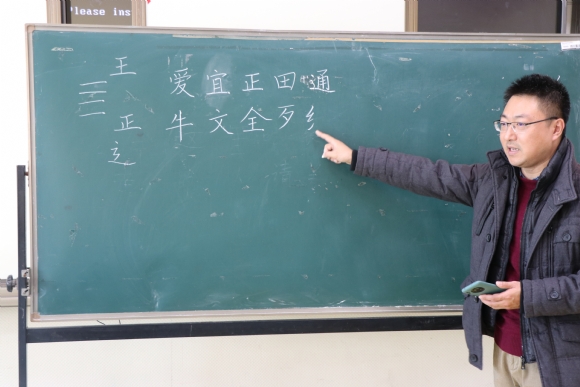 Please ins
王
三
正
辶
爱宜正田通
牛文全歹纟